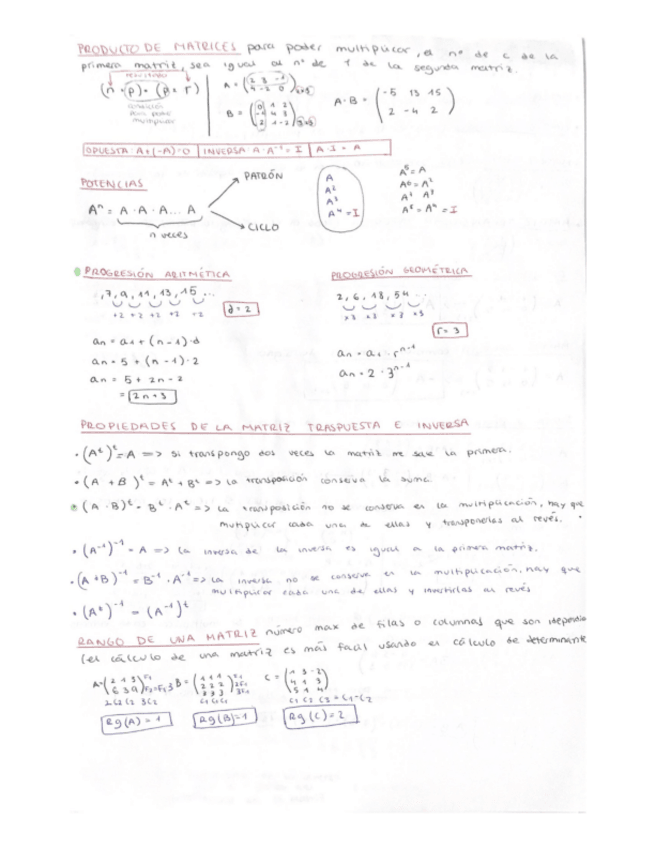 PRODUCTO DE MATRICES para poder multiplicar, el nº de c de la
primera matriz, sea igual al nº de f de la segunda matriz.
resultado
(n × p) · (p × r)
condición
para poder
multiplicar
A = (2 3 -1
4 -2 0)2×3
B = (0 1 2
-1 4 3
2 1 -2)3×3
A·B = (-5 13 15
2 -4 2)
OPUESTA A+(-A)=0 | INVERSA A·A⁻¹=I | A·I = A
POTENCIAS
Aⁿ = A · A · A ... A
n veces
PATRÓN
CICLO
A
A²
A³
A⁴ = I
A⁵ = A
A⁶ = A²
A⁷ A³
A⁸ = A⁴ = I
PROGRESIÓN ARITMÉTICA
, 7, 9, 11, 13, 15 ...
+2 +2 +2 +2 +2
d = 2
an = a1 + (n-1)·d
an = 5 + (n-1)·2
an = 5 + 2n - 2
= 2n + 3
PROGRESIÓN GEOMÉTRICA
2, 6, 18, 54 ...
×3 ×3 ×3 ×3
r = 3
an = a1 · rⁿ⁻¹
an = 2 · 3ⁿ⁻¹
PROPIEDADES DE LA MATRIZ TRASPUESTA E INVERSA
· (Aᵗ)ᵗ = A => si transpongo dos veces la matriz me sale la primera.
· (A + B)ᵗ = Aᵗ + Bᵗ => la transposición conserva la suma.
· (A · B)ᵗ = Bᵗ · Aᵗ => La transposición no se conserva en la multiplicación, hay que
multiplicar cada una de ellas y transponerlas al revés.
· (A⁻¹)⁻¹ = A => La inversa de la inversa es igual a la primera matriz.
· (A + B)⁻¹ = B⁻¹ · A⁻¹ => La inversa no se conserva en la multiplicación, hay que
multiplicar cada una de ellas y invertirlas al revés
· (Aᵗ)⁻¹ = (A⁻¹)ᵗ
RANGO DE UNA MATRIZ número max de filas o columnas que son
(el cálculo de una matriz es más facil usando el cálculo de determinante
A = (2 1 3
6 3 9) F1
F2=F1·3
2C2 C2 3C2
B = (1 1 1
2 2 2
3 3 3) F1
2F1
3F1
C1 C1 C1
C = (1 3 -2
4 1 3
5 1 4)
C1 C2 C3 = C1-C2
Rg(A) = 1
Rg(B) = 1
Rg(C) = 2